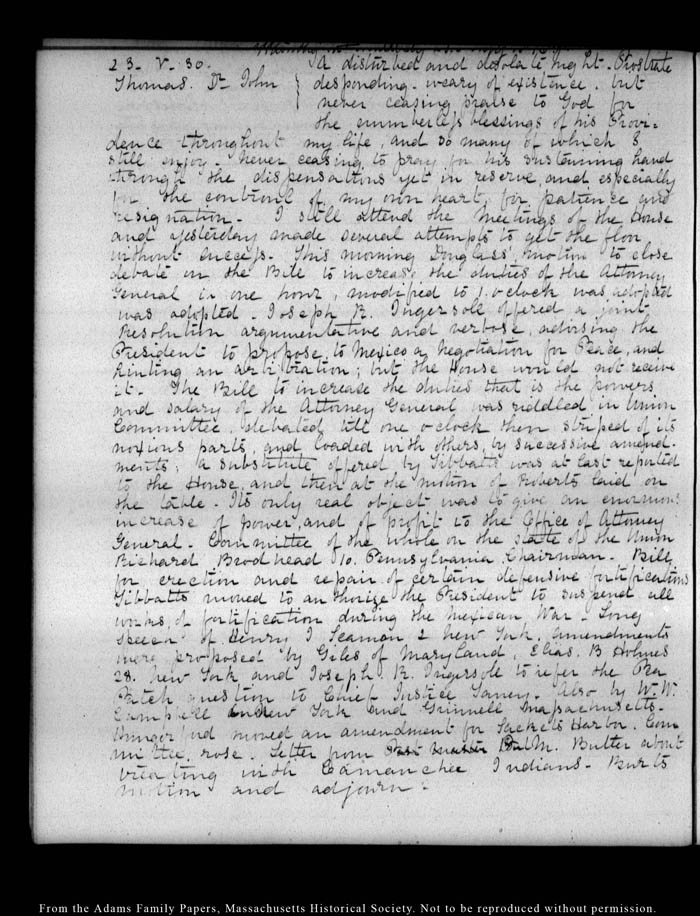 23. V. 30. A disturbed and desolate night. Prostrate
Thomas. Dr. John } desponding. weary of existence. but
never ceasing praise to God for
the numberless blessings of his Provi-
dence throughout my life, and so many of which I
still enjoy. Never ceasing to pray for his sustaining hand
through the dispensations yet in reserve, and especially
for the controul of my own heart, for patience and
resignation. I still attend the meetings of the House
and yesterday made several attempts to get the floor
without success. This morning Douglass' motion to close
debate in the Bill to increase the duties of the Attorney
General in one hour, modified to 1. o'clock was adopted
was adopted. Joseph R. Ingersoll offered a joint
Resolution argumentative and verbose, advising the
President to propose, to Mexico a negotiation for Peace, and
hinting an arbitration; but the House would not receive
it. The Bill to increase the duties that is the powers
and salary of the Attorney General, was riddled in Union
Committee, debated till one o'clock then striped of its
noxious parts, and loaded with others, by successive amend-
ments; a substitute offered by Tibbatts was at last reported
to the House, and then at the motion of Roberts laid on
the table. Its only real object was to give an enormous
increase of power, and of profit to the Office of Attorney
General. Committee of the whole on the state of the Union
Richard Brodhead 10. Pennsylvania, Chairman. Bill,
for erection and repair of certain defensive fortifications
Tibbatts moved to authorize the President to suspend all
works, of fortification during the Mexican War. Long
speech of Henry I Seaman 2 New York. amendments
were proposed by Giles of Maryland, Elias. B Holmes
28. New York and Joseph. R. Ingersole to refer the Pea
Patch question to Chief Justice Taney. Also by W. W.
Campbell New York and Grinnell Massachusetts.
Hungerford moved an amendment for Sackets Harbor. Com
mittee, rose. Letter from P. M. Butler about
treating with Camanchee Indians. Burts
motion and adjourn.
From the Adams Family Papers, Massachusetts Historical Society. Not to be reproduced without permission.